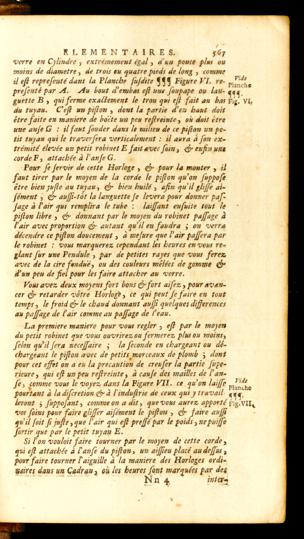 ELEMENTAIRES. 567
verre en Cylindre, extrémement égal, d'un ponce plus ou
moins de diametre, de trois ou quatre pieds de long, comme
il est representé dans la Planche susdite ¶¶¶ Figure VI. re-
presenté par A. Au bout d'embas est une soupape ou lan-
guette B, qui ferme exactement le trou qui est fait au bas
du tuyau. C'est un piston, dont la partie d'en haut doit
être faite en maniere de boëte un peu restreinte, où doit être
une anse G : il faut souder dans le milieu de ce piston un pe-
tit tuyau qui le traversera verticalement : il aura à son ex-
trémité elevée un petit robinet E fait avec soin, & enfin une
corde F, attachée à l'anse G.
Vide
Planche
¶¶¶
Fig. VI.
Pour se servir de cette Horloge, & pour la monter, il
faut tirer par le moyen de la corde le piston qu'on suppose
être bien juste au tuyau, & bien huilé, afin qu'il glisse ai-
sément, & aussi-tôt la languette se levera pour donner pas-
sage à l'air qui remplira le tube : laissant ensuite tout le
piston libre, & donnant par le moyen du robinet passage à
l'air avec proportion & autant qu'il en faudra ; on verra
décendre ce piston doucement, à mesure que l'air passera par
le robinet : vous marquerez cependant les heures en vous re-
glant sur une Pendule, par de petites rayes que vous ferez
avec de la cire fonduë, ou des couleurs mêlées de gomme &
d'un peu de fiel pour les faire attacher au verre.
Vous avez deux moyens fort bons & fort aisez, pour avan-
cer & retarder vôtre Horloge, ce qui peut se faire en tout
temps, le froid & le chaud donnant aussi quelques differences
au passage de l'air comme au passage de l'eau.
La premiere maniere pour vous regler, est par le moyen
du petit robinet que vous ouvrirez ou fermerez plus ou moins,
selon qu'il sera necessaire ; la seconde en chargeant ou dé-
chargeant le piston avec de petits morceaux de plomb ; dont
pour cet effet on a eu la precaution de creuser la partie supe-
rieure, qui est un peu restreinte, à cause des mailles de l'an-
se, comme vous le voyez dans la Figure VII. ce qu'on laisse
pourtant à la discretion & à l'industrie de ceux qui y travail-
leront ; supposant, comme on a dit, que vous aurez apporté
vos soins pour faire glisser aisément le piston, & faire aussi
qu'il soit si juste, que l'air qui est pressé par le poids, ne puisse
sortir que par le petit tuyau E.
Vide
Planche
¶¶¶
Fig. VII.
Si l'on vouloit faire tourner par le moyen de cette corde,
qui est attachée à l'anse du piston, un aissieu placé au dessus,
pour faire tourner l'aiguille à la maniere des Horloges ordi-
naires dans un Cadran, où les heures sont marquées par des
Nn 4 inter-